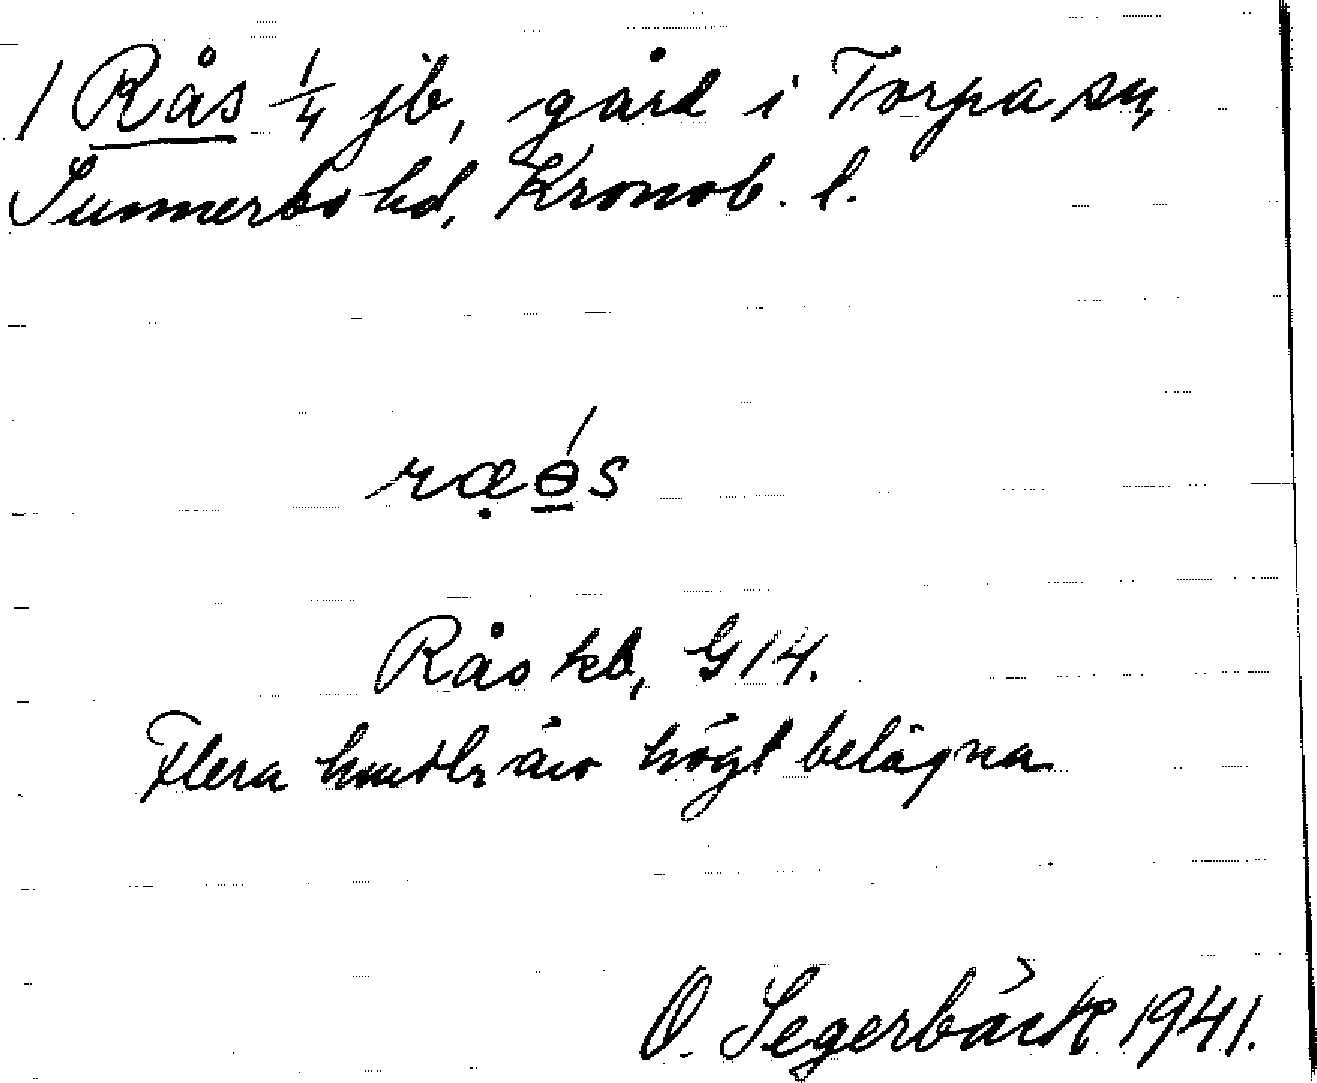 1 Rås 1/4 jb, gård i Torpa sn,
Sunnerbo hd, Kronob. l.
ræɵs
Rås kb, G 14.
Flera högt belägna
O. Segerbäck 1941.